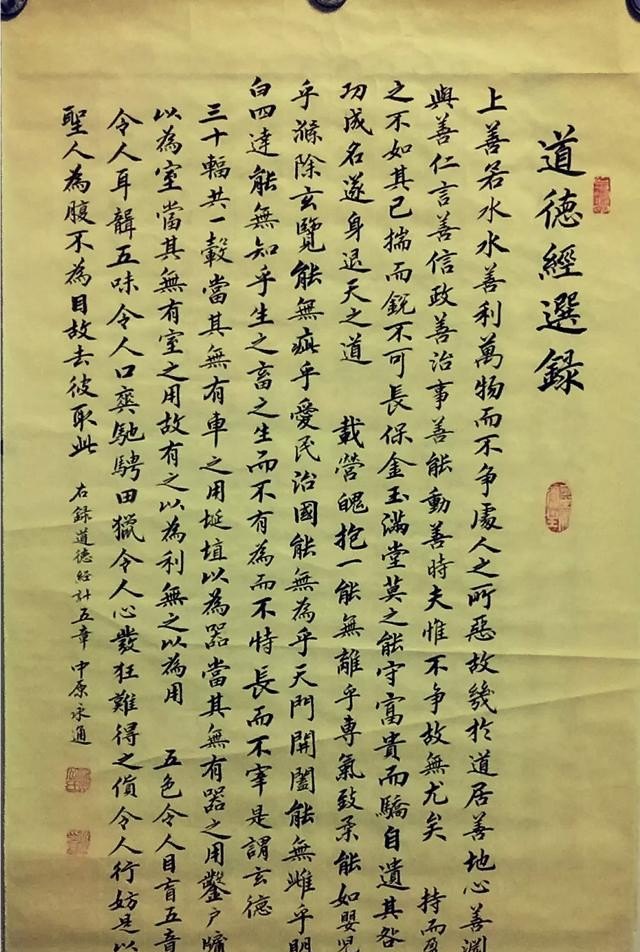 道德經選錄
上善若水水善利萬物而不争處人之所惡故幾於道居善地心善淵
與善仁言善信政善治事善能動善時夫惟不争故無尤矣 持而盈
之不如其已揣而銳不可長保金玉滿堂莫之能守富貴而驕自遺其咎
功成名遂身退天之道 載營魄抱一能無離乎專氣致柔能如嬰兒
乎滌除玄覽能無疵乎愛民治國能無為乎天門開闔能無雌乎明
白四達能無知乎生之畜之生而不有為而不恃長而不宰是謂玄德
三十輻共一轂當其無有車之用埏埴以為器當其無有器之用鑿戶牖
以為室當其無有室之用故有之以為利無之以為用 五色令人目盲五音
令人耳聾五味令人口爽馳騁田獵令人心發狂難得之貨令人行妨是以
聖人為腹不為目故去彼取此 右錄道德經計五章 中原永通